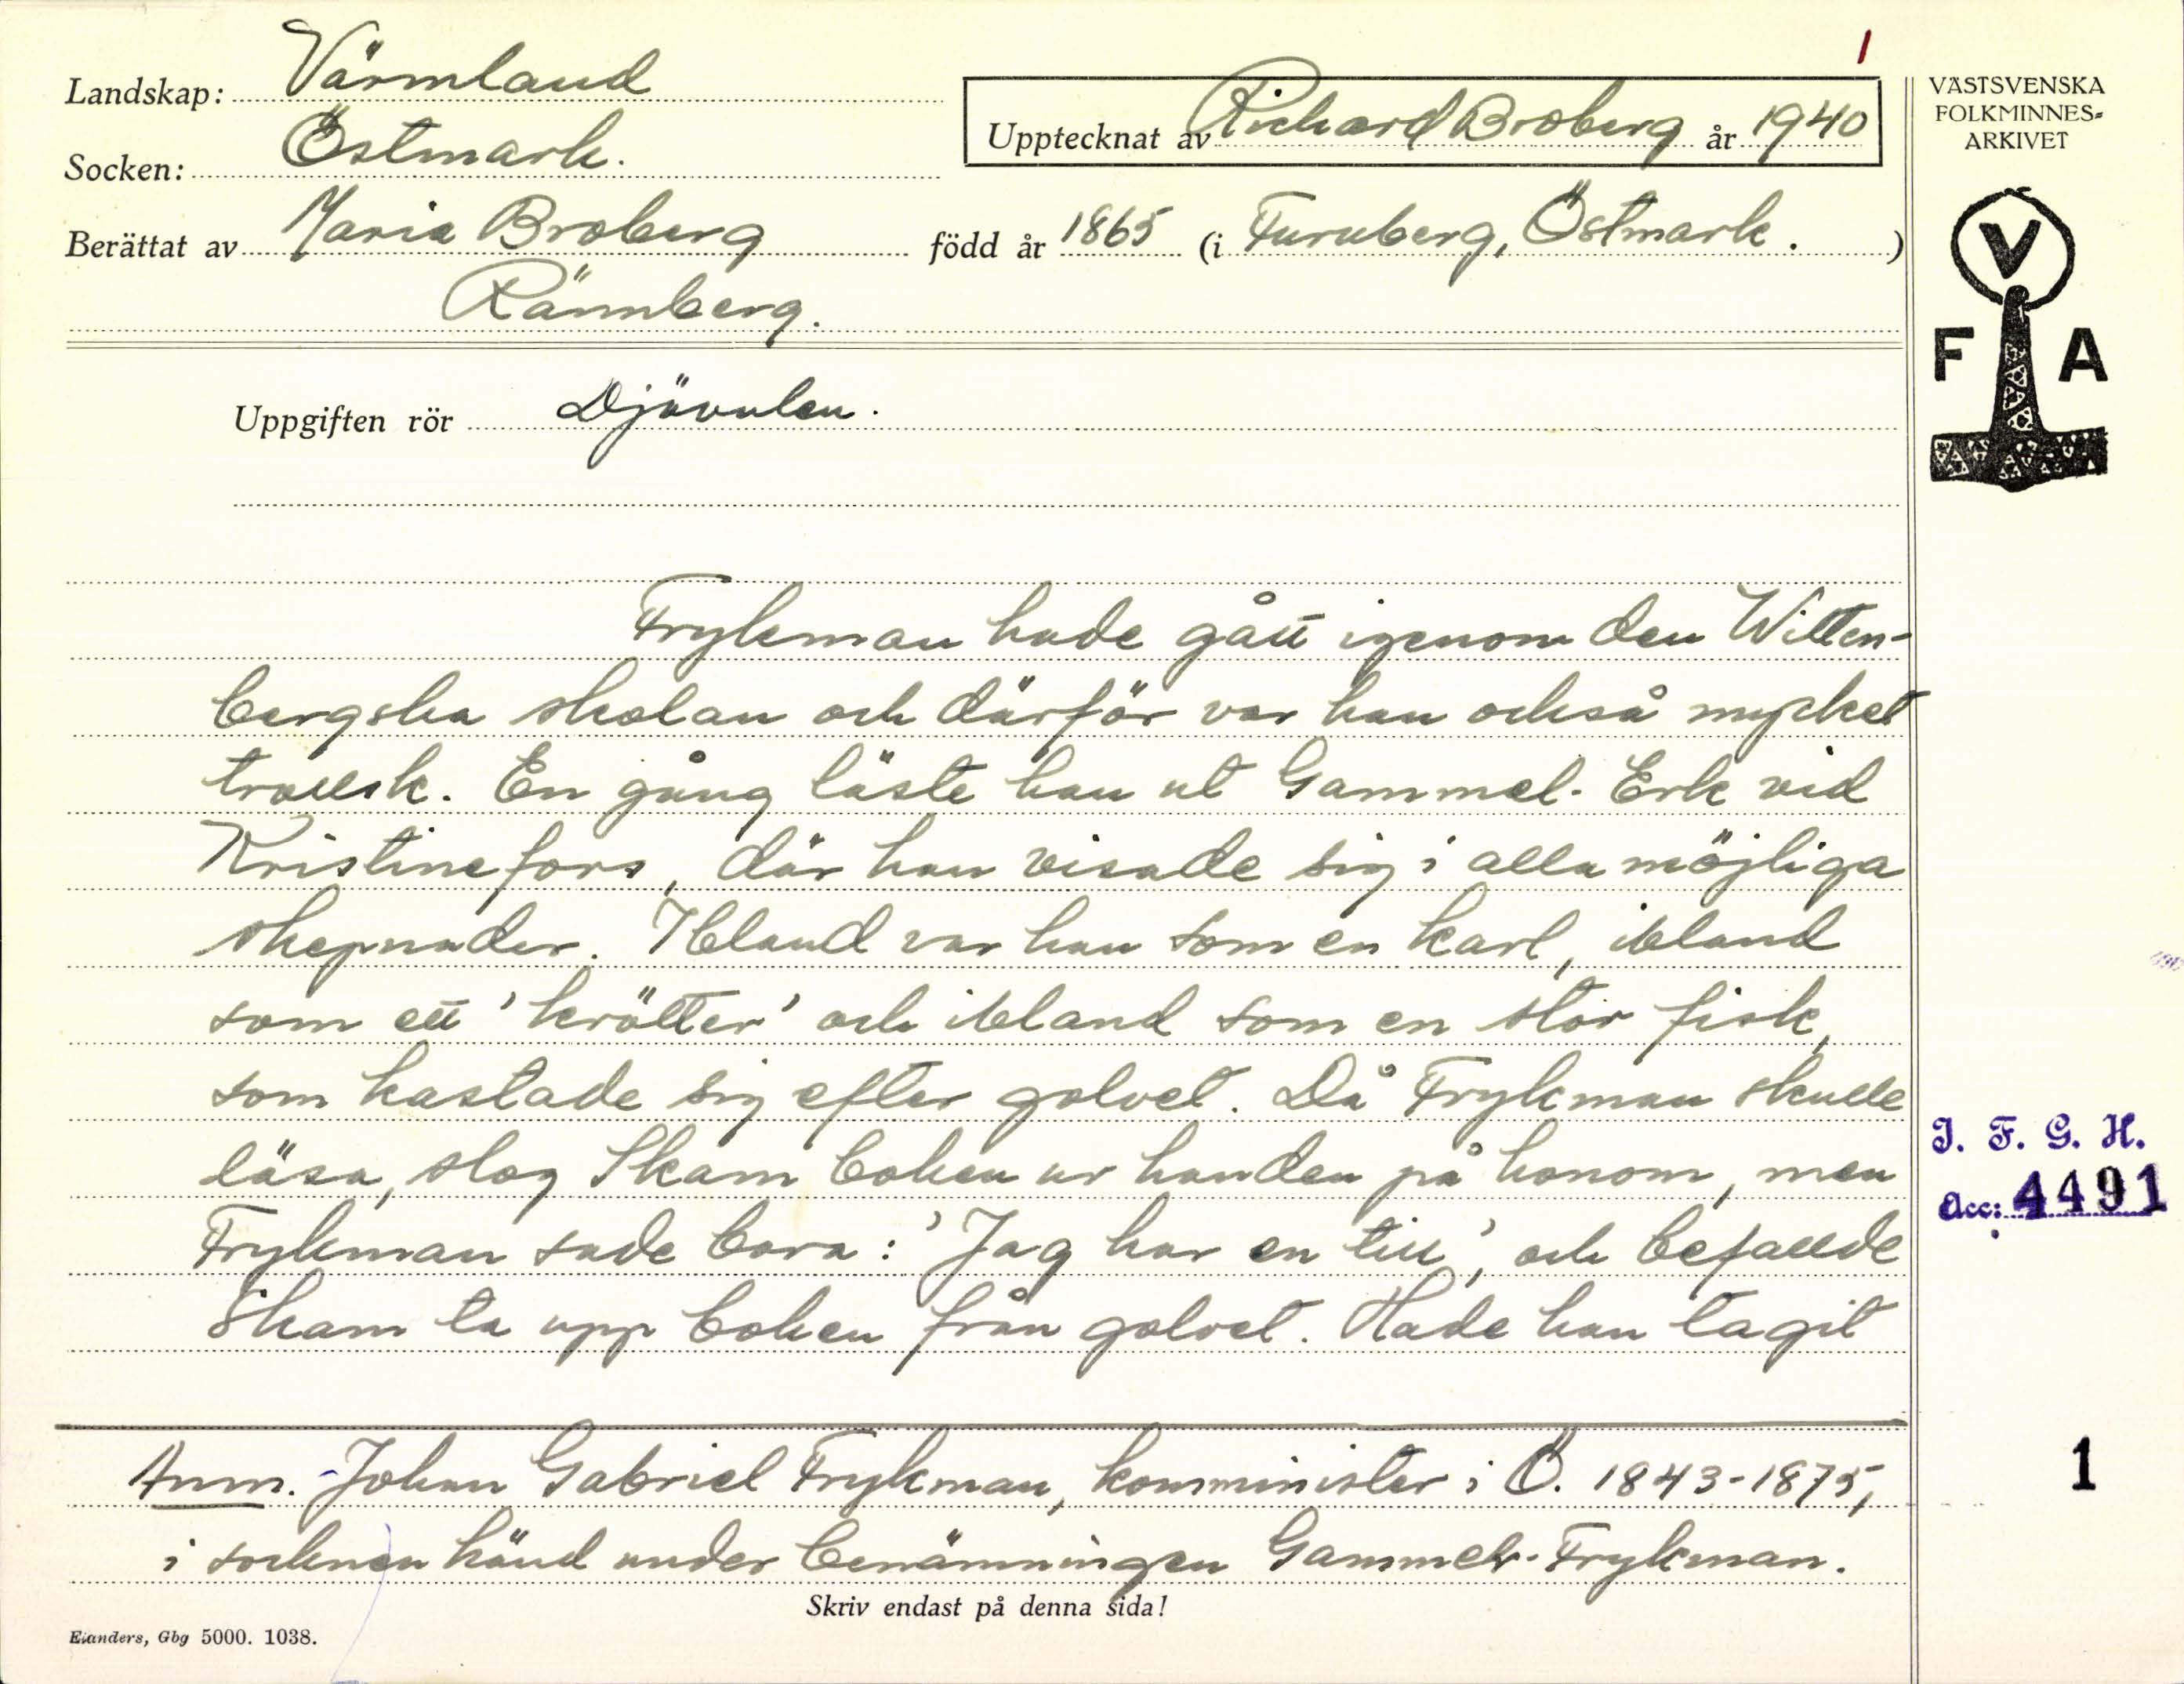 1
Landskap: Värmland
Socken: Östmark.
Upptecknat av Richard Broberg år 1940
Berättat av Maria Broberg född år 1865 (i Furuberg, Östmark.)
Rännberg.
VÄSTSVENSKA
FOLKMINNES-
ARKIVET
V
F A
Uppgiften rör Djävulen.
Frykman hade gått igenom den Witten-
bergska skolan och därför var han också mycket
trollsk. En gång läste han ut Gammel-Erk vid
Kristinefors, där han visade sig i alla möjliga
skepnader. Ibland var han som en karl, ibland
som ett 'krötter' och ibland som en stor fisk,
som kastade sig efter golvet. Då Frykman skulle
läsa, slog Skam boken ur handen på honom, men
Frykman sade bara: 'Jag har en till', och befallde
Skam ta upp boken från golvet. Hade han tagit
J. F. G. H.
Acc: 4491
Anm. Johan Gabriel Frykman, komminister i Ö. 1843-1875,
i socknen känd under benämningen Gammel-Frykman.
1
Skriv endast på denna sida!
Elanders, Gbg 5000. 1038.